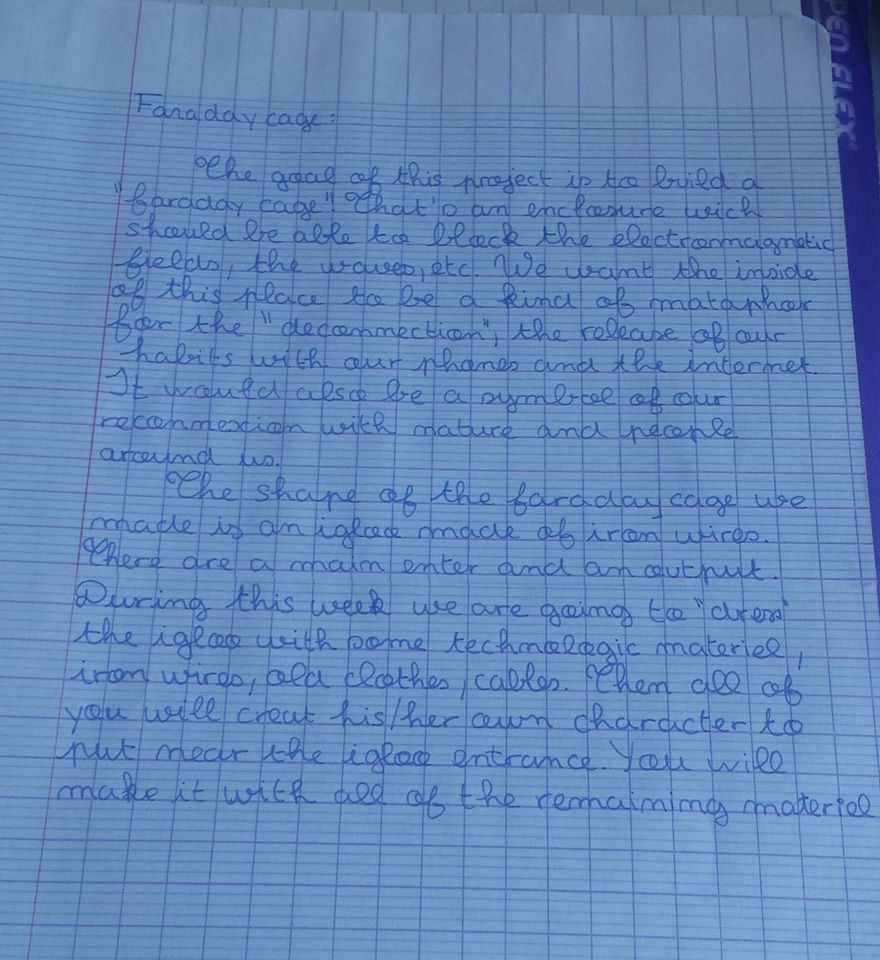 PEN ELEX
Faradday cage:
The goal of this project is to build a
"fardday cage" That's an enclosure wich
should be able to block the electromagnetic
fields, the waves, etc. We want the inside
of this place to be a kind of mataphor
for the "deconnection", the release of our
habits with our phones and the internet.
It would also be a symbol of our
reconnexion with nature and people
around us.
The shape of the faradday cage we
made is an igloo made of iron wires.
There are a main enter and an output.
During this week we are going to "dress"
the igloo with some technologic materiel,
iron wires, old clothes, cables. Then all of
you will creat his/her own character to
put near the igloo entrance. You will
make it with all of the remaining materiel